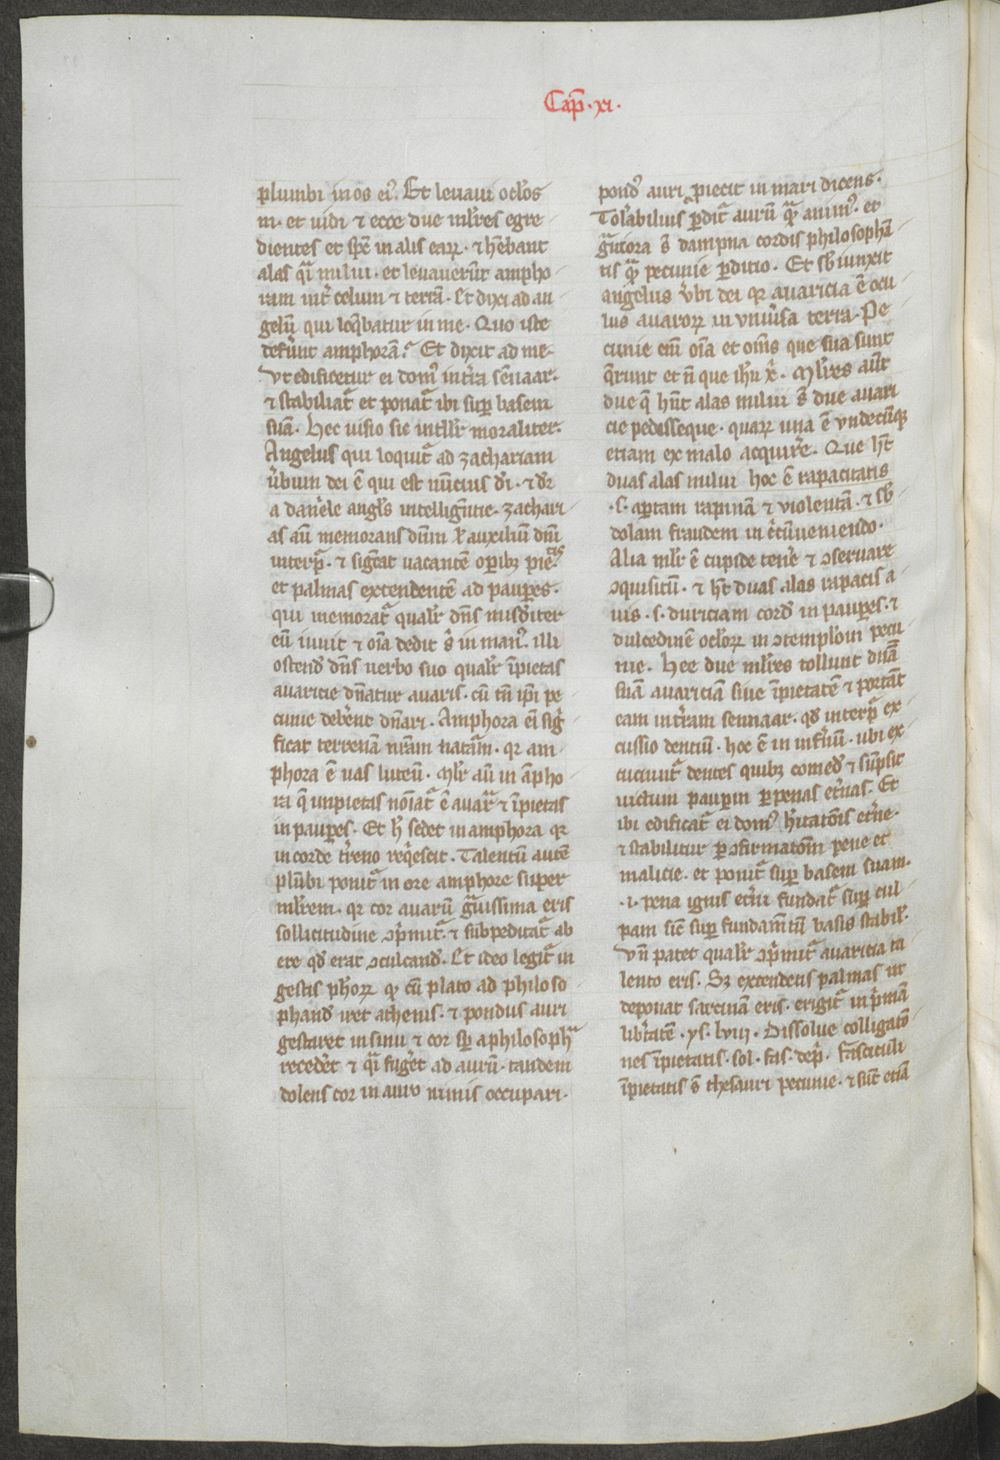 Cap̄. xi.
plumbi in os ei᷒. Et leuaui oc̄los
m̄. et vidi ⁊ ecce due ml̄res egre
dientes et sp̄c in alis earꝝ. ⁊ hēbant
alas q̄i milui. et leuauer̄t ampho
ram int̄ celum ⁊ terrā. Et dixi ad an
gelū qui loq̄batur in me. Quo iste
defer̄unt amphorā? Et dixit ad me.
Vt edificetur ei dom᷒ in tr̄ra sēnaar.
⁊ stabiliat᷑ et ponat᷑ ibi sup̄ basem
suā. Hec uisio sic intll̄r moraliter.
Angelus qui loquit᷑ ad zachariam
u̓bum dei ē qui est nūcius dī. ⁊ dr̄
a daniele angl̄s intelligētie. zachari
as aū memorans dn̄m ł auxiliū dn̄i
interp̄. ⁊ siḡcat uacantē oꝑibꝫ pie᷒ᵗⁱˢ
et palmas extendentē ad paupes.
qui memorat᷑ qualr̄ dn̄s misditer
eū iuuit ⁊ oīa dedit s̄ in man᷒. illi
ostend̄ dn̄s uerbo suo qualr̄ īpietas
auaricie dn̄atur auaris. cū tn̄ ip̄i pe
cunie debēnt dn̄ari. Amphora eī siḡ
ficat terrenā nr̄am naturā. qr am
phora ē uas luteū. Ml̄r aū in āpho
ra q̄ impietas noīat᷑ ē auar᷑ ⁊ īpietas
in paupes. Et h̄ sedet in amphora qr
in corde tr̄eno req̄escit. Talentū autē
plūbi ponit᷑ in ore amphore super
ml̄rem. qr cor auarū gͣuissima eris
sollicitudine ↄp̄mit᷑. ⁊ subpeditat᷑ ab
ere qd̄ erat ↄculcand̄. Et ideo legit᷑ in
gestis ph̄orꝝ ꝙ cū plato ad philoso
phand̄ iret athenis. ⁊ pondus auri
gestaret in sinu ⁊ cor sp̄ a philosophͣ
recedēt ⁊ q̄i fugēt ad aurū. tandem
dolens cor in auro nimis occupari.
pond᷒ auri ꝓiecit in mari dicens.
Tol̄abilius ꝑdit᷑ aurū qͣ᷑ anim᷒. et
gͣuiora s̄ dampna cordis philosophā
tis qͣ᷑ pecunie ꝑditio. Et sb̄iunxit
angelus u̓bi dei qr auaricia ē ocu
lus auarorꝝ in vniu̓sa terra. Pe
cunie eīn oīa et om̄s que sua sunt
q̄runt et n̄ que ihū xp̄. Ml̄res aūt
due q̄ hn̄t alas milui s̄ due auari
cie pedisseque. quarꝝ una ē vndecūqꝫ
etiam ex malo acquir̄e. Que h̄t
duas alas milui hoc ē rapacitatis
.s. aꝑtam rapinā ⁊ violentā. ⁊ sb̄
dolam fraudem in c̄cūueniendo.
Alia ml̄r ē cupide ten̄e ⁊ ↄseruare
ↄquisitū. ⁊ h̄t duas alas rapacis a
uis. s. duriciam cord̄ in paupes. ⁊
dulcedinē oc̄lorꝝ in ↄtemplōm pecu
nie. Hee due ml̄res tollunt dn̄ā
suā auariciā siue īpietatē ⁊ portāt
eam in tr̄ram sennaar. qd̄ interp̄ ex
cussio dentiū. hoc ē in inf̄nū. ubi ex
cuciunt᷑ dentes quibꝫ comed̄ ⁊ sūpsit
uictum pauꝑum ꝑ penas et̄nas. Et
ibi edificat᷑ ei dom᷒ h̄itatōis et̄ne.
⁊ stabilitur ꝑ ↄfirmatōm pene et
malicie. et ponit᷑ sup̄ basem suam.
.i. pena ignis et̄ni fundat᷑ sup̄ cul
pam sic̄ sup̄ fundam̄tū basis stabil᷑.
Vn̄ patet qualr̄ ↄp̄mit᷑ auaricia ta
lento eris. Sꝫ extendens palmas ut
deponat sarcinā eris. erigit᷑ in p̄mā
lib̄tatē. ys. lviij. Dissolue colligatō
nes īpietatis. sol. fas. dep̄. Fasciculi
īpietatis s̄ thesauri pecunie. ⁊ sūt etiā